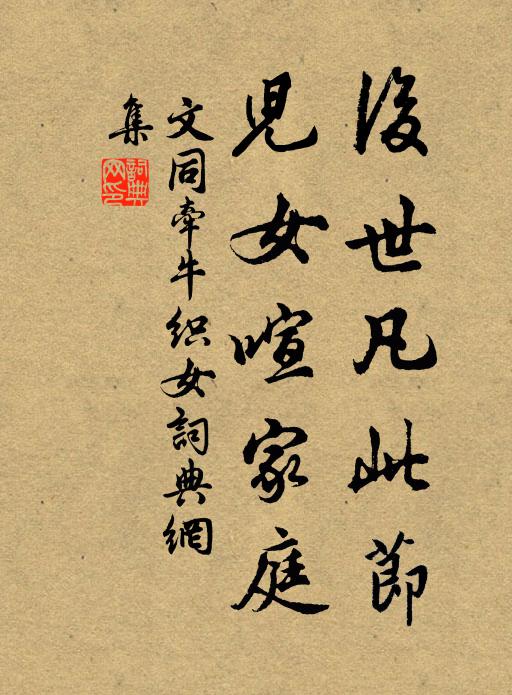 後世凡此節
兒女喧家庭
文同牽牛織女詞典網
集
詞典
网印